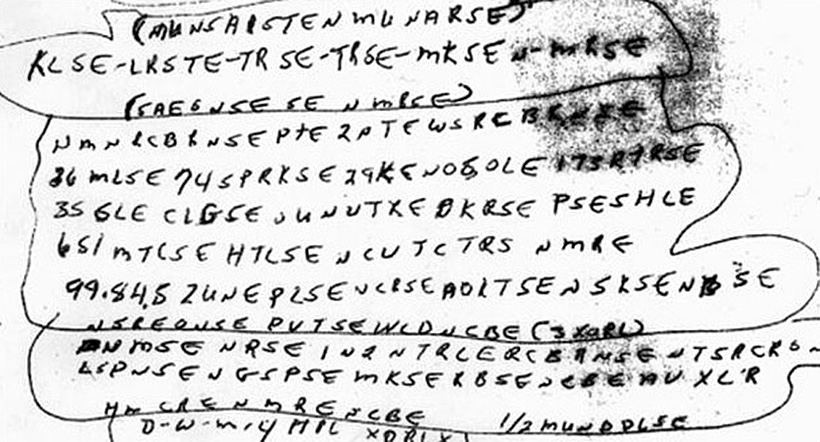 (MUNSARSTEN MU NARSE)
KLSE-LRSTE-TRSE-TRSE-MKSEN-MRSE
(SAEGNSE SE N MRSE)
NMNRCBRNSE PTE 2 PTEWSRCBRNSE
36 MLSE 74 SPRKSE 29 KENOSOLE 173 RTRSE
35 GLE CLGSE UNUTXE DKRSE PSESHLE
651 MTCSE HTLSE N CUTCTRS NMRE
99.84.5 ZUNE PLSE NCRSE AOLTSE NSKSE NB SE
NSREONSE PVTSE WLD NCBE (3 XORL)
NMSE NRSE IN2NTRLERCBRNSE NTSRCRSN
LSPNSE NGSPSE MKSERBSE NCBE AV XL'R
HM CRE NMRE NCBE 1/2 MUNDDLSE
D-W-M-4 MIL XDRLX